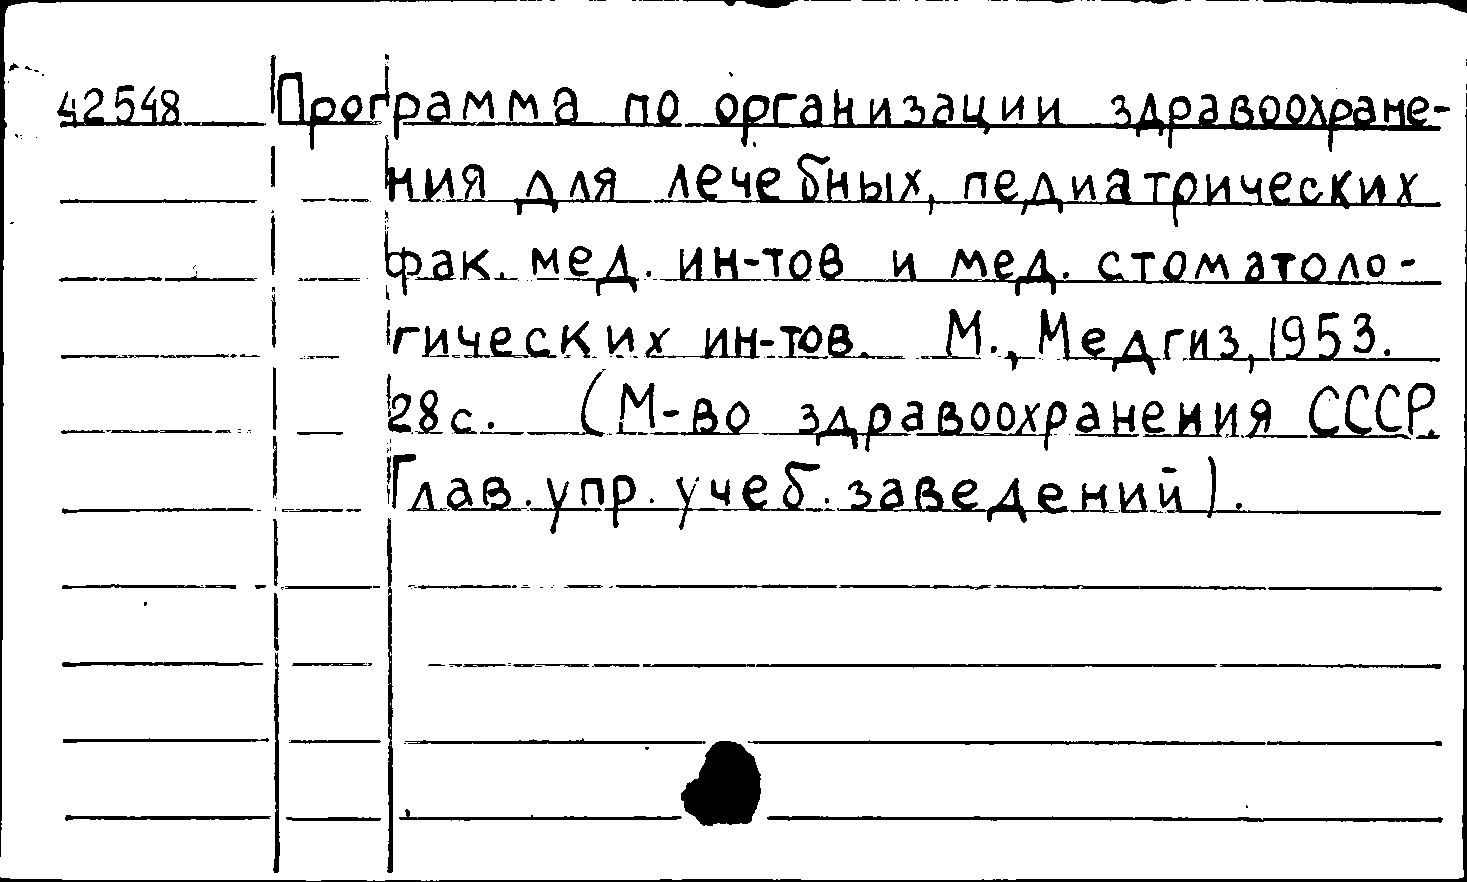 42548 Программа по организации здравоохране-
ния для лечебных, педиатрических
фак. мед. ин-тов и мед. стоматоло-
гических ин-тов. М., Медгиз, 1953.
28с. (М-во здравоохранения СССР.
Глав. упр. учеб. заведений).